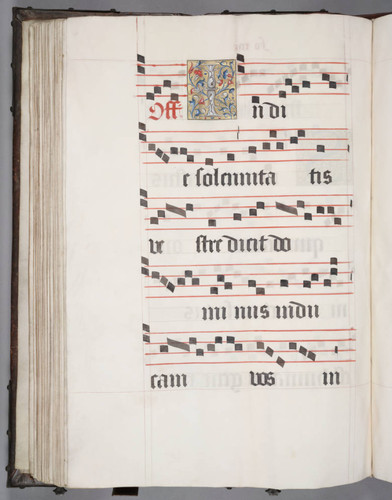 Off. In di
e solennita tis
ve stre dicit do
mi nus indu
cam vos in